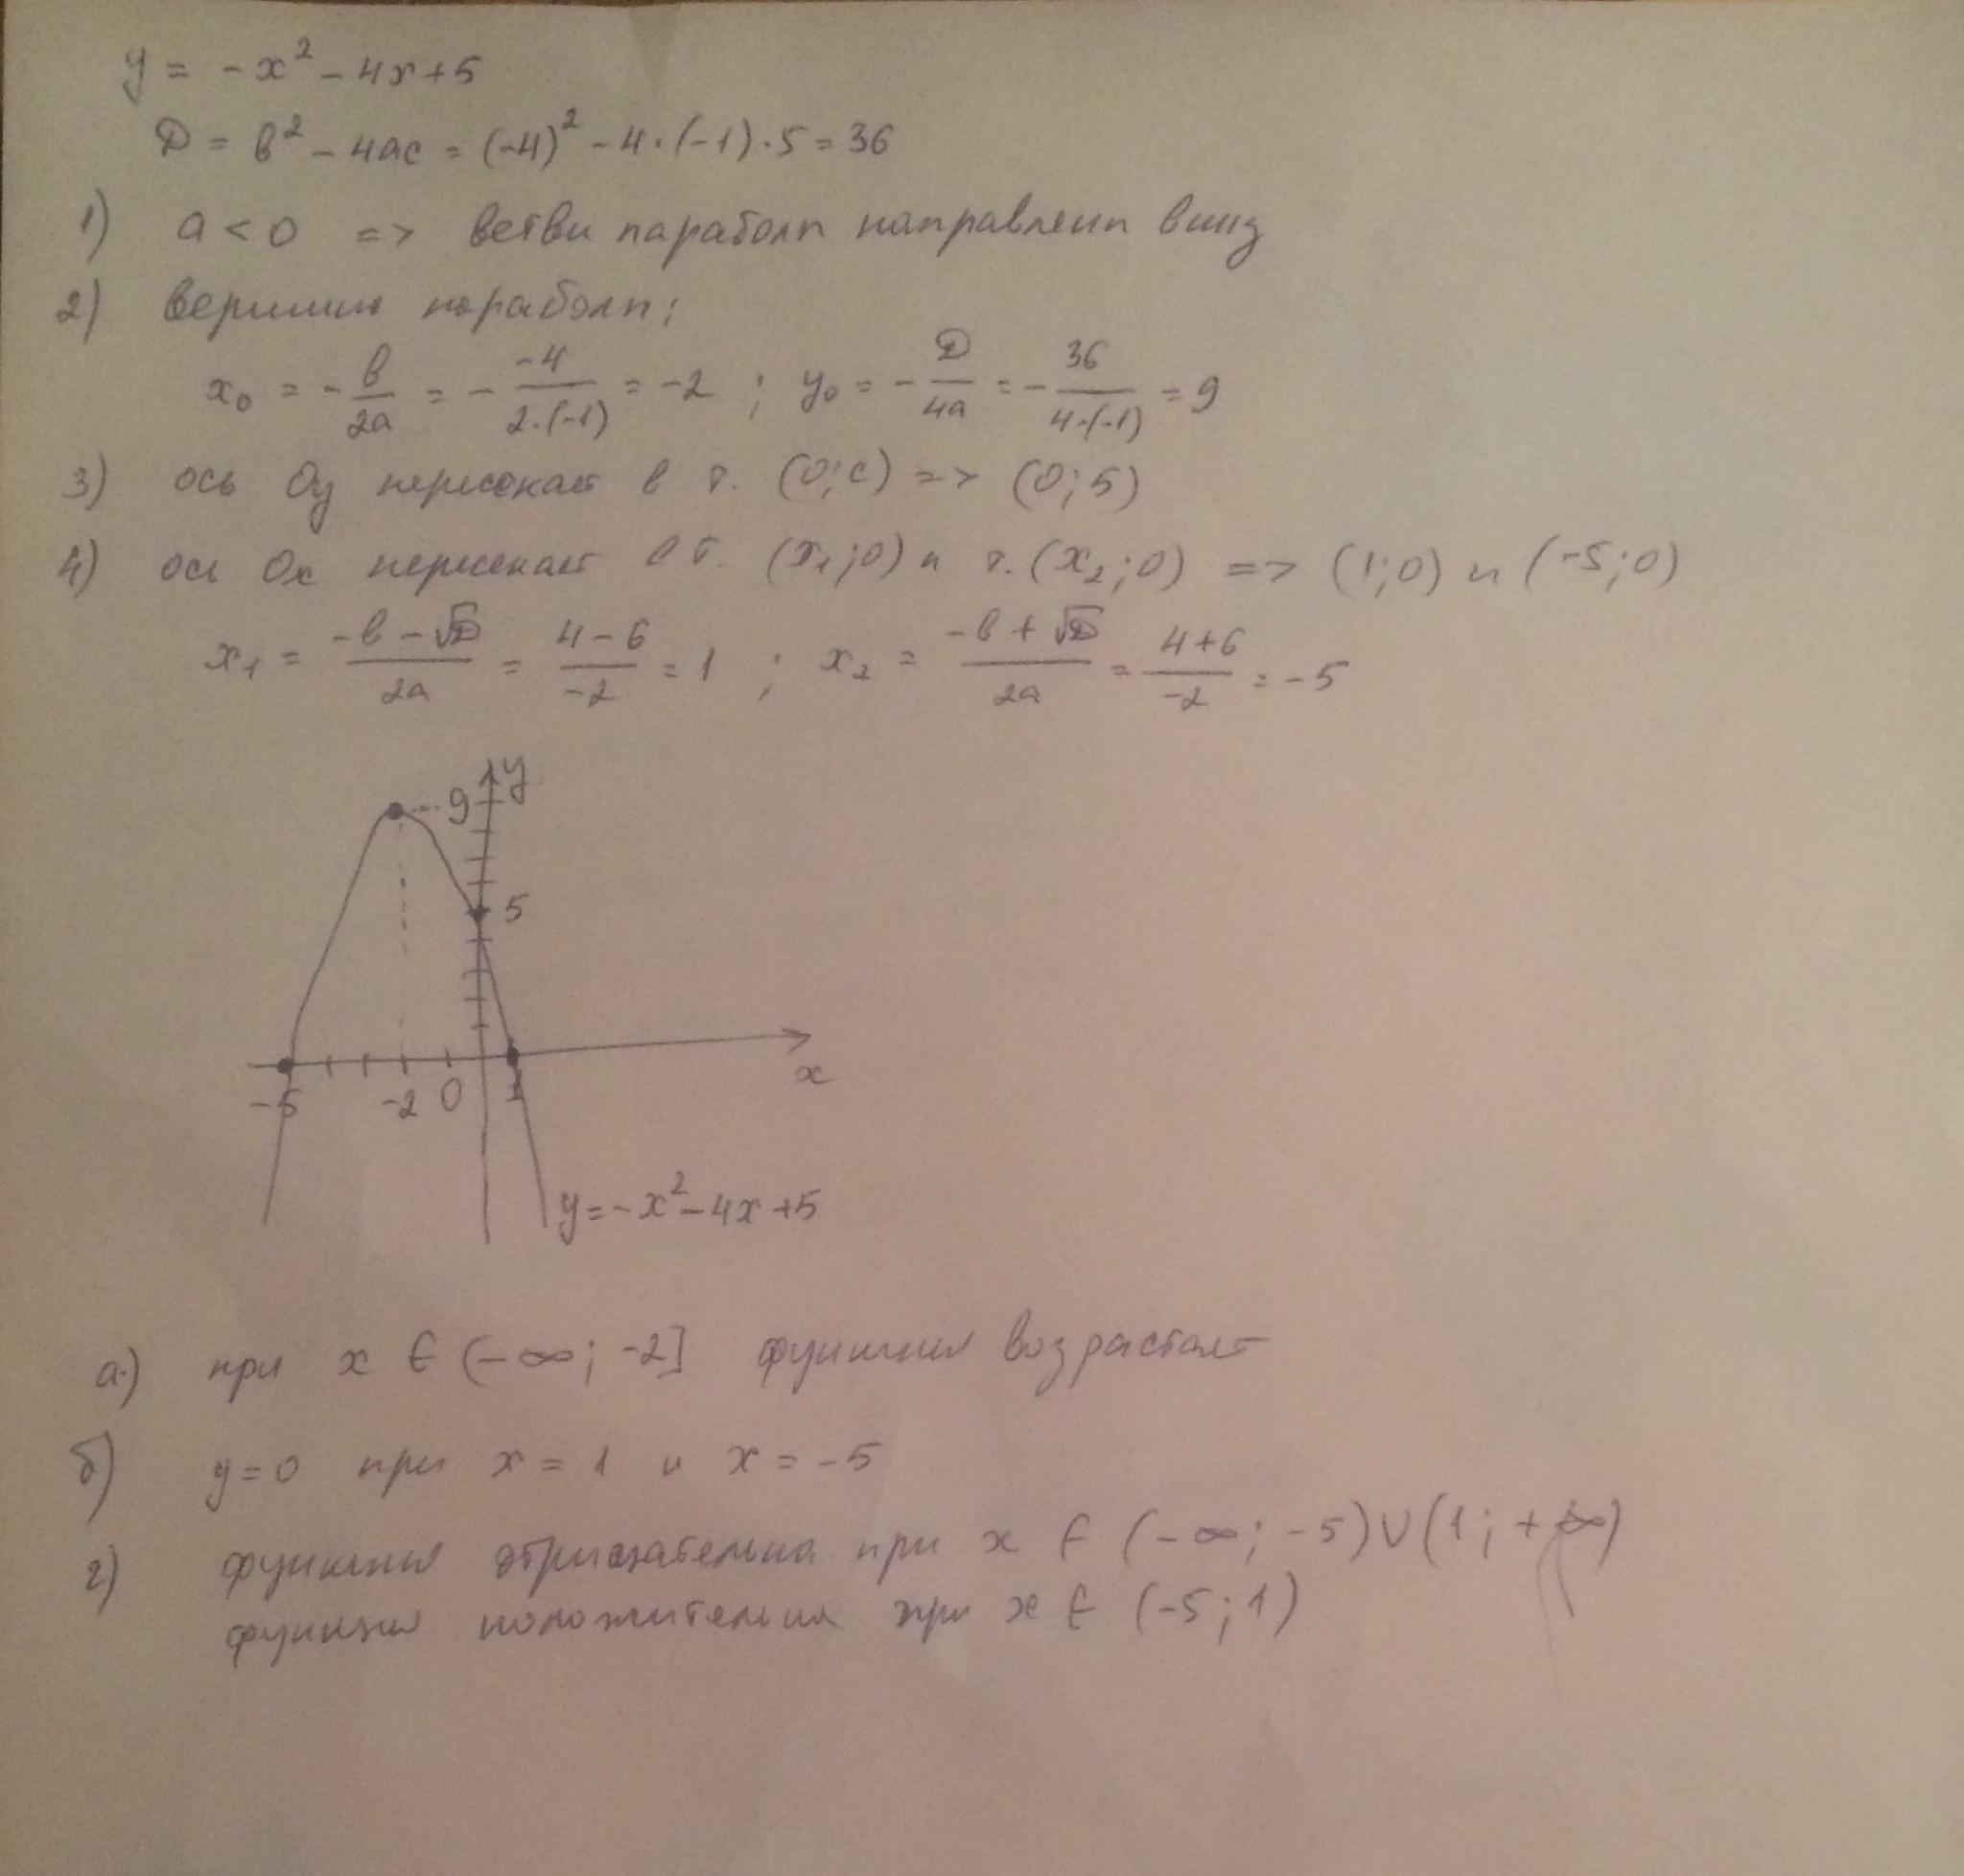 y = -x² - 4x + 5
D = b² - 4ac = (-4)² - 4·(-1)·5 = 36
1) a < 0 => ветви параболы направлены вниз
2) вершина параболы:
x₀ = -b/2a = - -4/2·(-1) = -2 ; y₀ = -D/4a = - 36/4·(-1) = 9
3) ось Oy пересекает в т. (0;c) => (0;5)
4) ось Ox пересекает в т. (x₁;0) и т. (x₂;0) => (1;0) и (-5;0)
x₁ = -b-√D/2a = 4-6/-2 = 1 ; x₂ = -b+√D/2a = 4+6/-2 = -5
y
9
5
-5 -2 0 1 x
y = -x² - 4x + 5
а) при x ∈ (-∞; -2] функция возрастает
б) y = 0 при x = 1 и x = -5
г) функция отрицательна при x ∈ (-∞; -5) ∪ (1; +∞)
функция положительна при x ∈ (-5; 1)